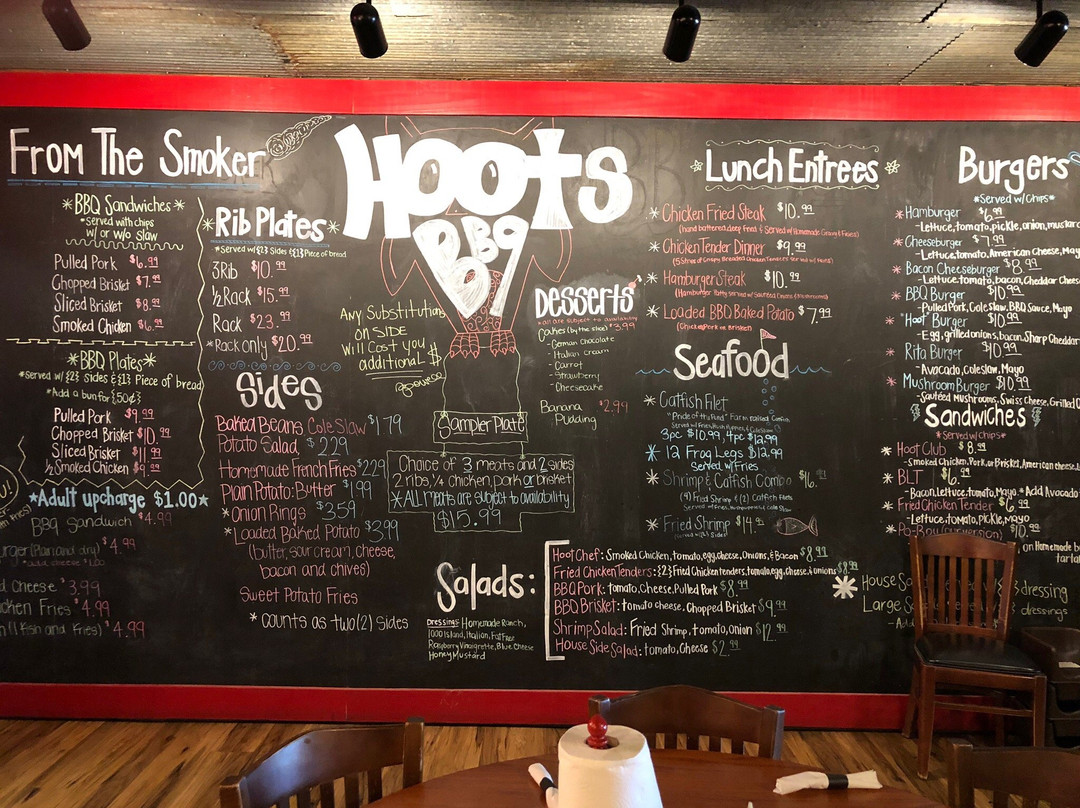 From The Smoker
*BBQ Sandwiches*
*Served with chips
w/ or w/o slaw
Pulled Pork $6.99
Chopped Brisket $7.99
Sliced Brisket $8.99
Smoked Chicken $6.99
*BBQ Plates*
*served w/ {2} sides & {1} Piece of bread
*Add a bun for {50¢}
Pulled Pork $9.99
Chopped Brisket $10.99
Sliced Brisket $11.99
1/2 Smoked Chicken $9.99
*Adult upcharge $1.00*
BBQ Sandwich $4.99
urger (Plain and dry) $4.99
*add cheese
d Cheese $3.99
cken Fries $4.99
(fish and Fries) $4.99
*Rib Plates*
*Served w/ {2} Sides & {1} Piece of bread
3 Rib $10.99
1/2 Rack $15.99
Rack $23.99
*Rack only $20.99
Sides
Baked Beans Cole Slaw $1.79
Potato Salad $2.29
Homemade French Fries $2.29
Plain Potato: Butter $1.99
*Onion Rings $3.59
*Loaded Baked Potato $3.99
(butter, sour cream, cheese,
bacon and chives)
Sweet Potato Fries
*counts as two (2) sides
Hoots
BBQ
Any Substitutions
on SIDE
will Cost you
additional $
Sampler Plate
Choice of 3 meats and 2 sides
2 ribs, 1/4 chicken, pork or brisket
*ALL meats are subject to availability
$15.99
Desserts
*all are subject to availability
Cakes (by the slice) $3.99
- German chocolate
- Italian cream
- Carrot
- Strawberry
- Cheesecake
Banana
Pudding $2.99
Salads:
Dressings: Homemade Ranch,
1000 Island, Italian, Fat Free
Raspberry Vinaigrette, Blue Cheese
Honey Mustard
Hoot Chef: Smoked Chicken, tomato, egg, cheese, Onions, & Bacon $8.99
Fried Chicken Tenders: {2} Fried Chicken tenders, tomato, egg, cheese & onions $8.99
BBQ Pork: tomato, Cheese, Pulled Pork $8.99
BBQ Brisket: tomato cheese, Chopped Brisket $9.99
Shrimp Salad: Fried Shrimp, tomato, onion $12.99
House Side Salad: tomato, Cheese $2.99
Lunch Entrees
*Chicken Fried Steak $10.99
(hand battered, deep fried & Served w/ Homemade Gravy & Fries)
*Chicken Tender Dinner $9.99
*Hamburger Steak $10.99
(Hamburger Patty served w/ Sautéed Onions & Mushrooms)
*Loaded BBQ Baked Potato $7.99
(Chicken, Pork or Brisket)
Seafood
*Catfish Filet
"Pride of the Pond" Farm raised
3pc $10.99, 4pc $12.99
*12 Frog Legs $12.99
Served w/ Fries
*Shrimp & Catfish Combo $16.
(9) Fried Shrimp & (2) Catfish Filets
*Fried Shrimp $14.99
Burgers
*Served w/ Chips*
*Hamburger $6.99
-Lettuce, tomato, pickle, onion, mustard
*Cheeseburger $7.99
-Lettuce, tomato, American Cheese, May
*Bacon Cheeseburger $8.99
-Lettuce, tomato, bacon, Cheddar Chees
*BBQ Burger $10.99
-Pulled Pork, Cole Slaw, BBQ Sauce, Mayo
*"Hoot" Burger $10.99
-Egg, grilled onions, bacon, Sharp Cheddar
*Rita Burger $10.99
-Avocado, Coleslaw, Mayo
*Mushroom Burger $10.99
-Sautéed Mushrooms, Swiss Cheese, Grilled O
Sandwiches
*Served w/ Chips*
*Hoot Club $8.99
-Smoked Chicken, Pork or Brisket, American cheese, L
*BLT $6.99
-Bacon, Lettuce, tomato, Mayo *Add Avocado
*Fried Chicken Tender $6.99
-Lettuce, tomato, Pickle, Mayo
*Po-Boy $10.99
on Homemade b
tartar
*House Sa dressing
Large Sa dressings